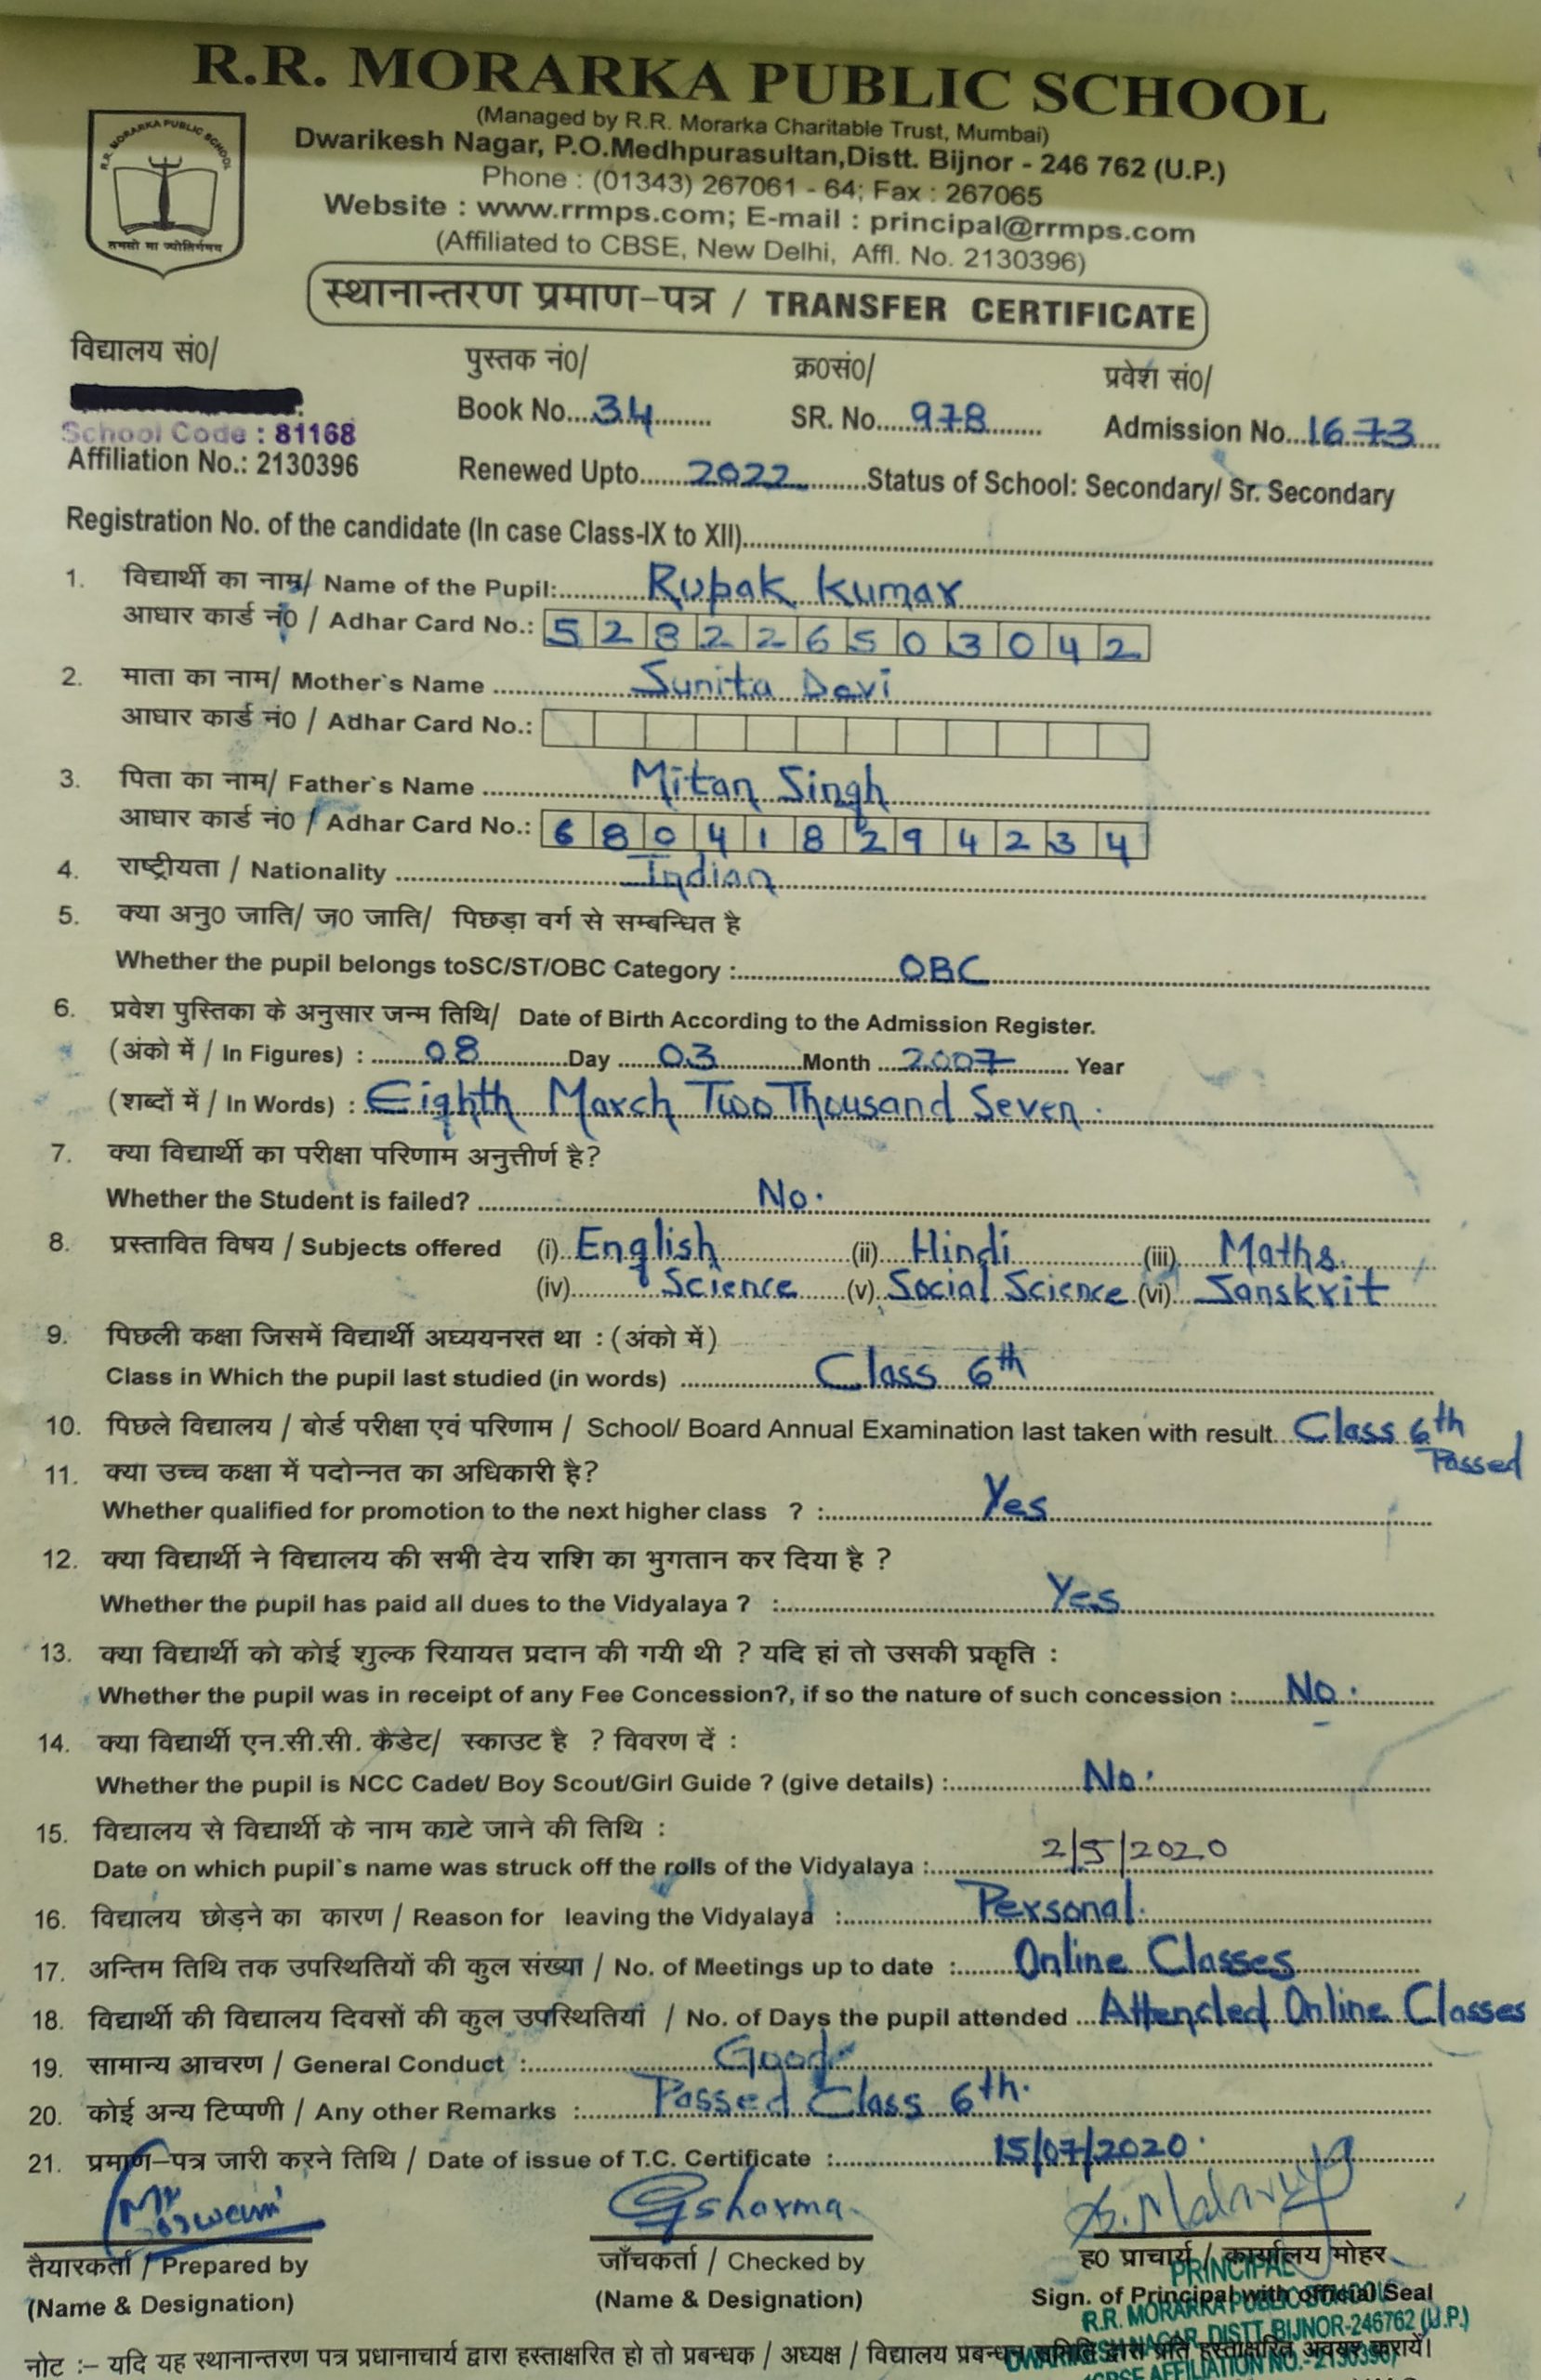 R.R. MORARKA PUBLIC SCHOOL
(Managed by R.R. Morarka Charitable Trust, Mumbai)
Dwarikesh Nagar, P.O.Medhpurasultan,Distt. Bijnor - 246 762 (U.P.)
Phone : (01343) 267061 - 64; Fax : 267065
Website : www.rrmps.com; E-mail : principal@rrmps.com
(Affiliated to CBSE, New Delhi, Affl. No. 2130396)
R.R. MORARKA PUBLIC SCHOOL
तमसो मा ज्योतिर्गमय
स्थानान्तरण प्रमाण-पत्र / TRANSFER CERTIFICATE
विद्यालय सं0/ पुस्तक नं0/ क्र0सं0/ प्रवेश सं0/
Book No....34 SR. No....978 Admission No...1673
School Code : 81168
Affiliation No.: 2130396 Renewed Upto....2022....Status of School: Secondary/ Sr. Secondary
Registration No. of the candidate (In case Class-IX to XII)
1. विद्यार्थी का नाम/ Name of the Pupil: Rupak Kumar
आधार कार्ड नं0 / Adhar Card No.: 5 2 8 2 2 6 5 0 3 0 4 2
2. माता का नाम/ Mother`s Name Sunita Devi
आधार कार्ड नं0 / Adhar Card No.:
3. पिता का नाम/ Father`s Name Mitan Singh
आधार कार्ड नं0 / Adhar Card No.: 6 8 0 4 1 8 2 9 4 2 3 4
4. राष्ट्रीयता / Nationality Indian
5. क्या अनु0 जाति/ ज0 जाति/ पिछड़ा वर्ग से सम्बन्धित है
Whether the pupil belongs toSC/ST/OBC Category : OBC
6. प्रवेश पुस्तिका के अनुसार जन्म तिथि/ Date of Birth According to the Admission Register.
(अंको में / In Figures) : 08 Day 03 Month 2007 Year
(शब्दों में / In Words) : Eighth March Two Thousand Seven.
7. क्या विद्यार्थी का परीक्षा परिणाम अनुत्तीर्ण है?
Whether the Student is failed? No.
8. प्रस्तावित विषय / Subjects offered (i) English (ii) Hindi (iii) Maths
(iv) Science (v) Social Science (vi) Sanskrit
9. पिछली कक्षा जिसमें विद्यार्थी अघ्ययनरत था : (अंको में)
Class in Which the pupil last studied (in words) Class 6th
10. पिछले विद्यालय / बोर्ड परीक्षा एवं परिणाम / School/ Board Annual Examination last taken with result. Class 6th
Passed
11. क्या उच्च कक्षा में पदोन्नत का अधिकारी है?
Whether qualified for promotion to the next higher class ? : Yes
12. क्या विद्यार्थी ने विद्यालय की सभी देय राशि का भुगतान कर दिया है ?
Whether the pupil has paid all dues to the Vidyalaya ? : Yes
13. क्या विद्यार्थी को कोई शुल्क रियायत प्रदान की गयी थी ? यदि हां तो उसकी प्रकृति :
Whether the pupil was in receipt of any Fee Concession?, if so the nature of such concession : No.
14. क्या विद्यार्थी एन.सी.सी. कैडेट/ स्काउट है ? विवरण दें :
Whether the pupil is NCC Cadet/ Boy Scout/Girl Guide ? (give details) : No.
15. विद्यालय से विद्यार्थी के नाम काटे जाने की तिथि :
Date on which pupil`s name was struck off the rolls of the Vidyalaya : 2/5/2020
16. विद्यालय छोड़ने का कारण / Reason for leaving the Vidyalaya : Personal.
17. अन्तिम तिथि तक उपस्थितियों की कुल संख्या / No. of Meetings up to date : Online Classes
18. विद्यार्थी की विद्यालय दिवसों की कुल उपस्थितियां / No. of Days the pupil attended Attended Online Classes
19. सामान्य आचरण / General Conduct : Good
20. कोई अन्य टिप्पणी / Any other Remarks : Passed Class 6th.
21. प्रमाण-पत्र जारी करने तिथि / Date of issue of T.C. Certificate : 15/07/2020.
Gsharma
तैयारकर्ता / Prepared by जाँचकर्ता / Checked by ह0 प्राचार्य / कार्यालय मोहर
(Name & Designation) (Name & Designation) Sign. of Principal with official Seal
PRINCIPAL
R.R. MORARKA PUBLIC SCHOOL
DWARIKESH NAGAR, DISTT. BIJNOR-246762 (U.P.)
(CBSE AFFILIATION NO.- 2130396)
नोट :- यदि यह स्थानान्तरण पत्र प्रधानाचार्य द्वारा हस्ताक्षरित हो तो प्रबन्धक / अध्यक्ष / विद्यालय प्रबन्धन समिति द्वारा प्रति हस्ताक्षरित अवश्य करायें।